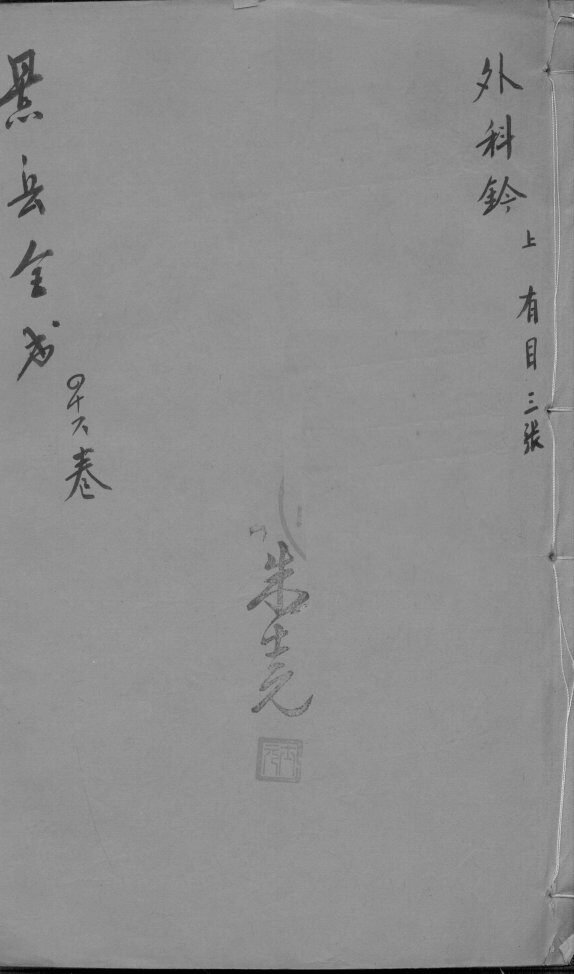 外科鈐 上
有目三張
朱士元
景岳全书
四十六卷